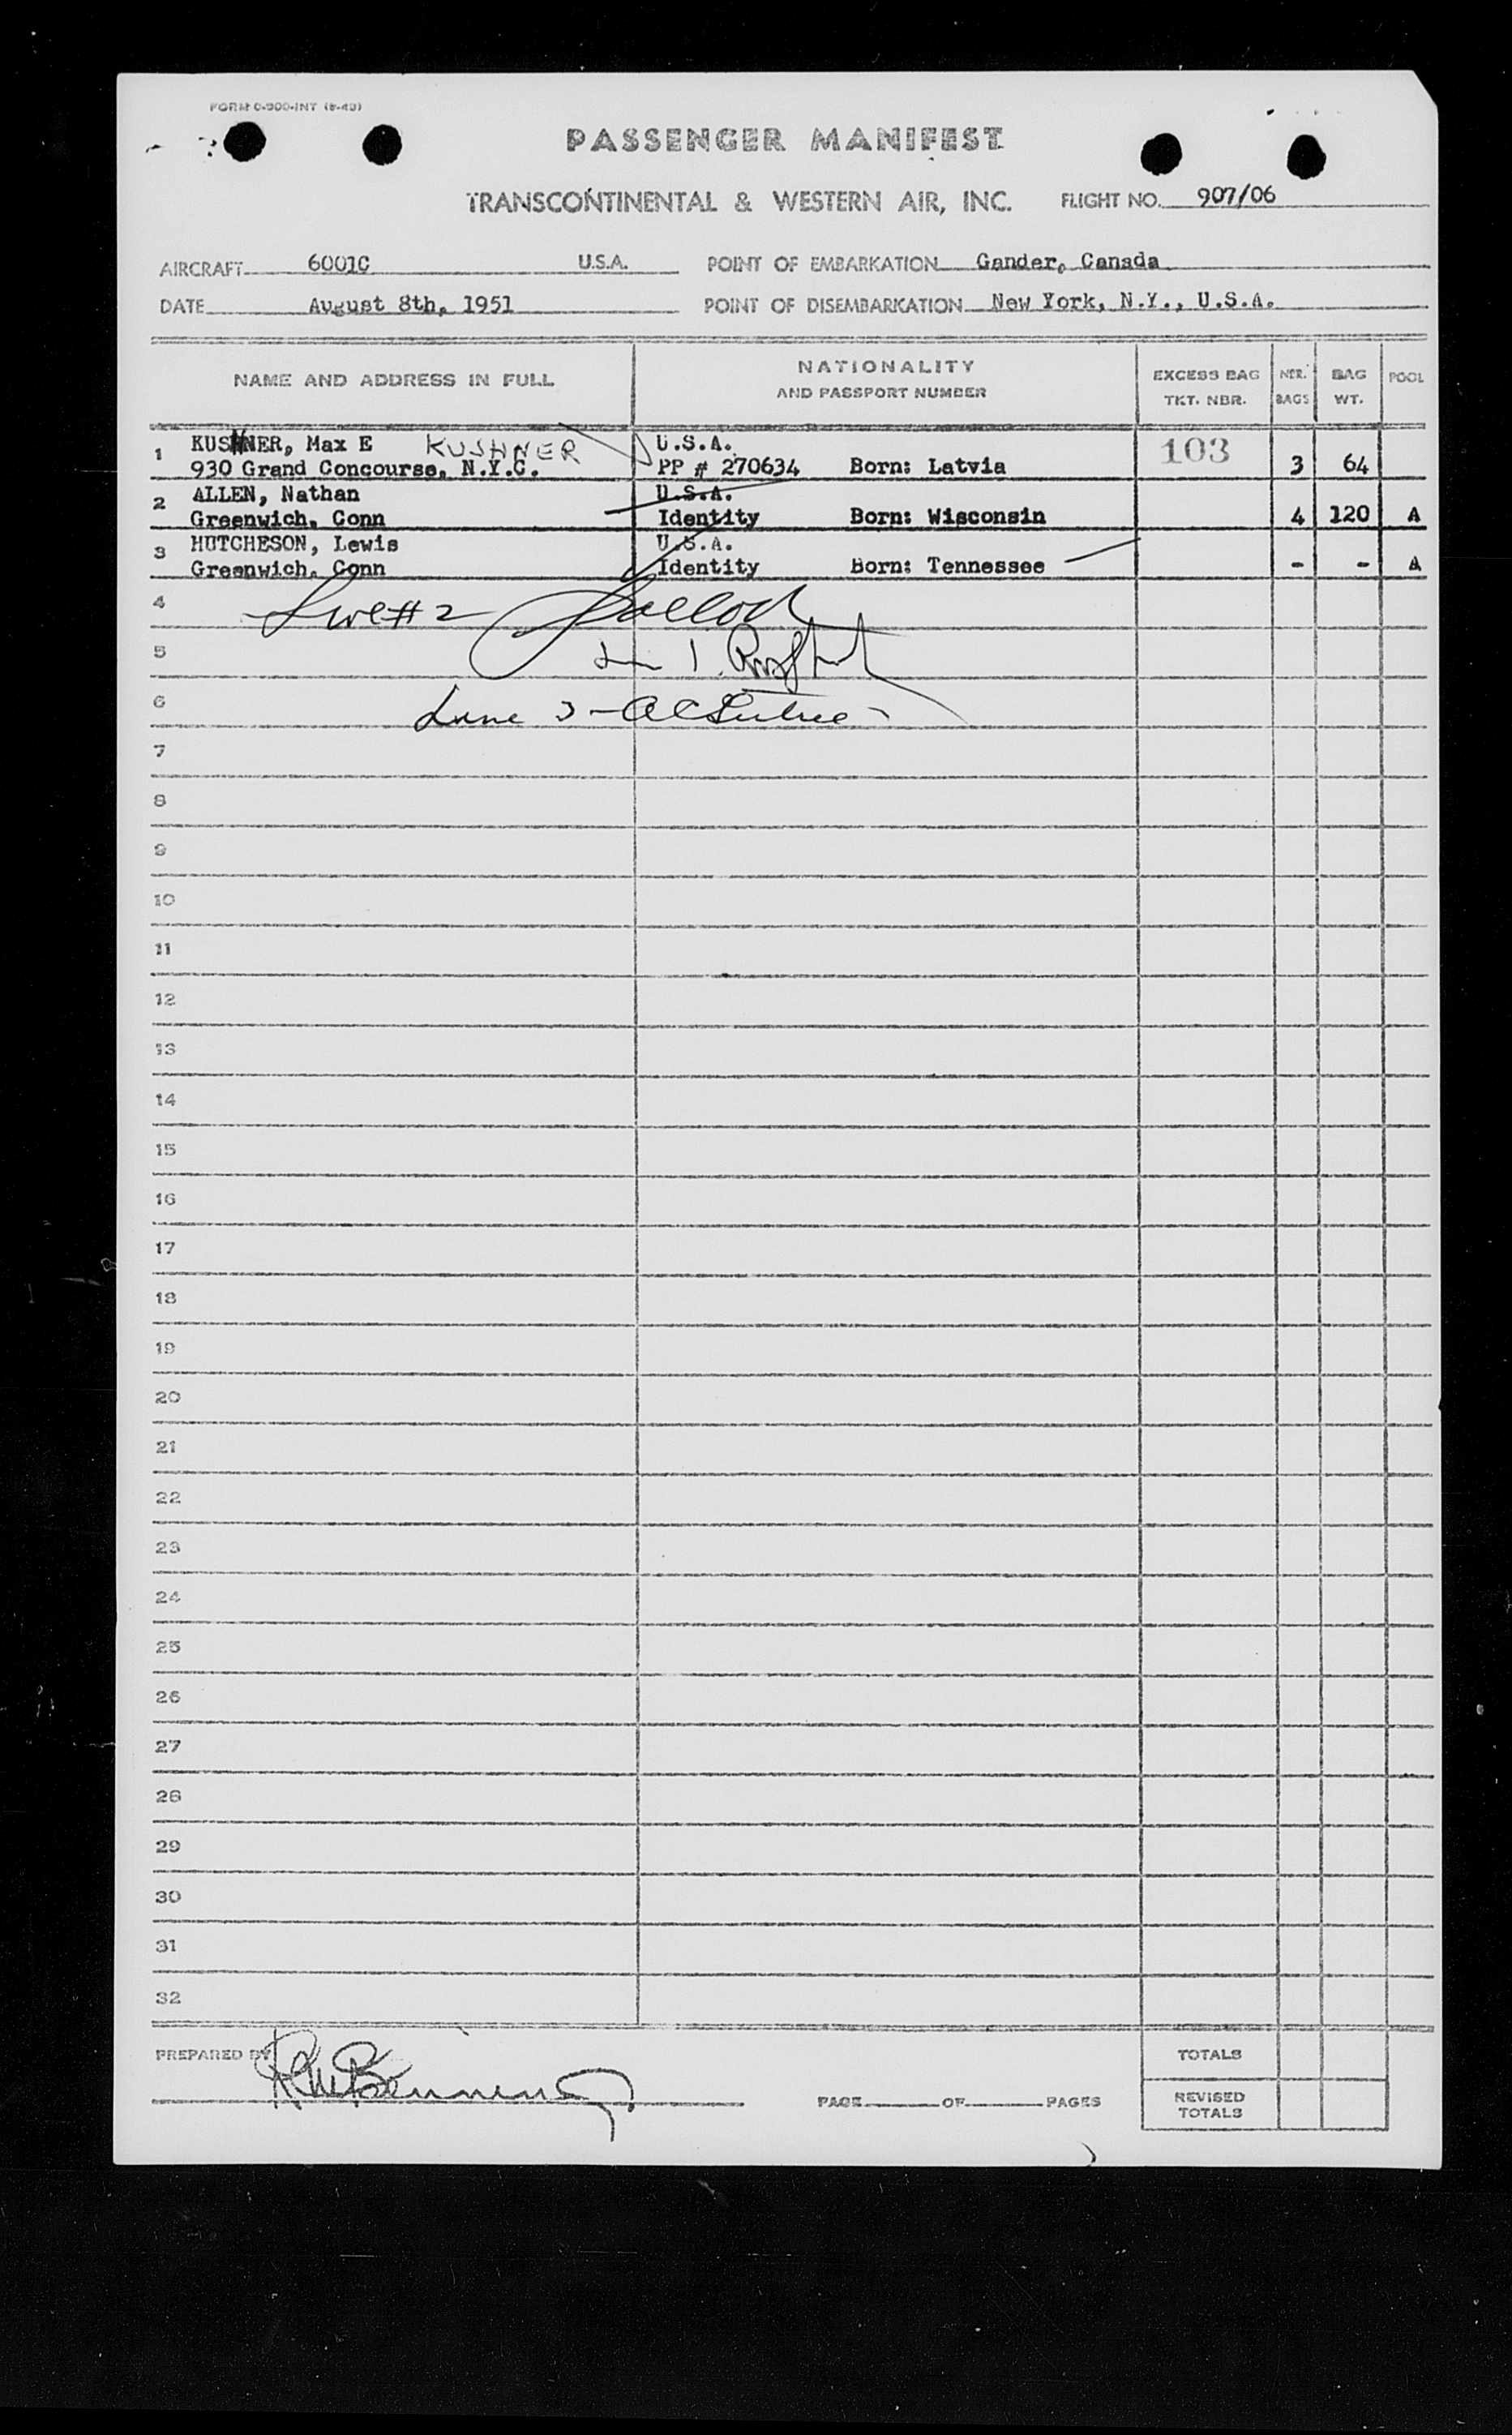 FORM 0-900-INT (8-49)
PASSENGER MANIFEST
TRANSCONTINENTAL & WESTERN AIR, INC. FLIGHT NO. 907/06
AIRCRAFT 6001C U.S.A. POINT OF EMBARKATION Gander, Canada
DATE August 8th, 1951 POINT OF DISEMBARKATION New York, N.Y., U.S.A.
NAME AND ADDRESS IN FULL NATIONALITY AND PASSPORT NUMBER EXCESS BAG TKT. NBR. NBR. BAGS BAG WT. POOL
1 KUSHNER, Max E KUSHNER U.S.A. 103
930 Grand Concourse, N.Y.C. PP # 270634 Born: Latvia 3 64
2 ALLEN, Nathan U.S.A.
Greenwich, Conn Identity Born: Wisconsin 4 120 A
3 HUTCHESON, Lewis U.S.A.
Greenwich, Conn Identity Born: Tennessee - - A
4
5
6 Line 3 -
7
8
9
10
11
12
13
14
15
16
17
18
19
20
21
22
23
24
25
26
27
28
29
30
31
32
PREPARED BY TOTALS
PAGE OF PAGES REVISED TOTALS